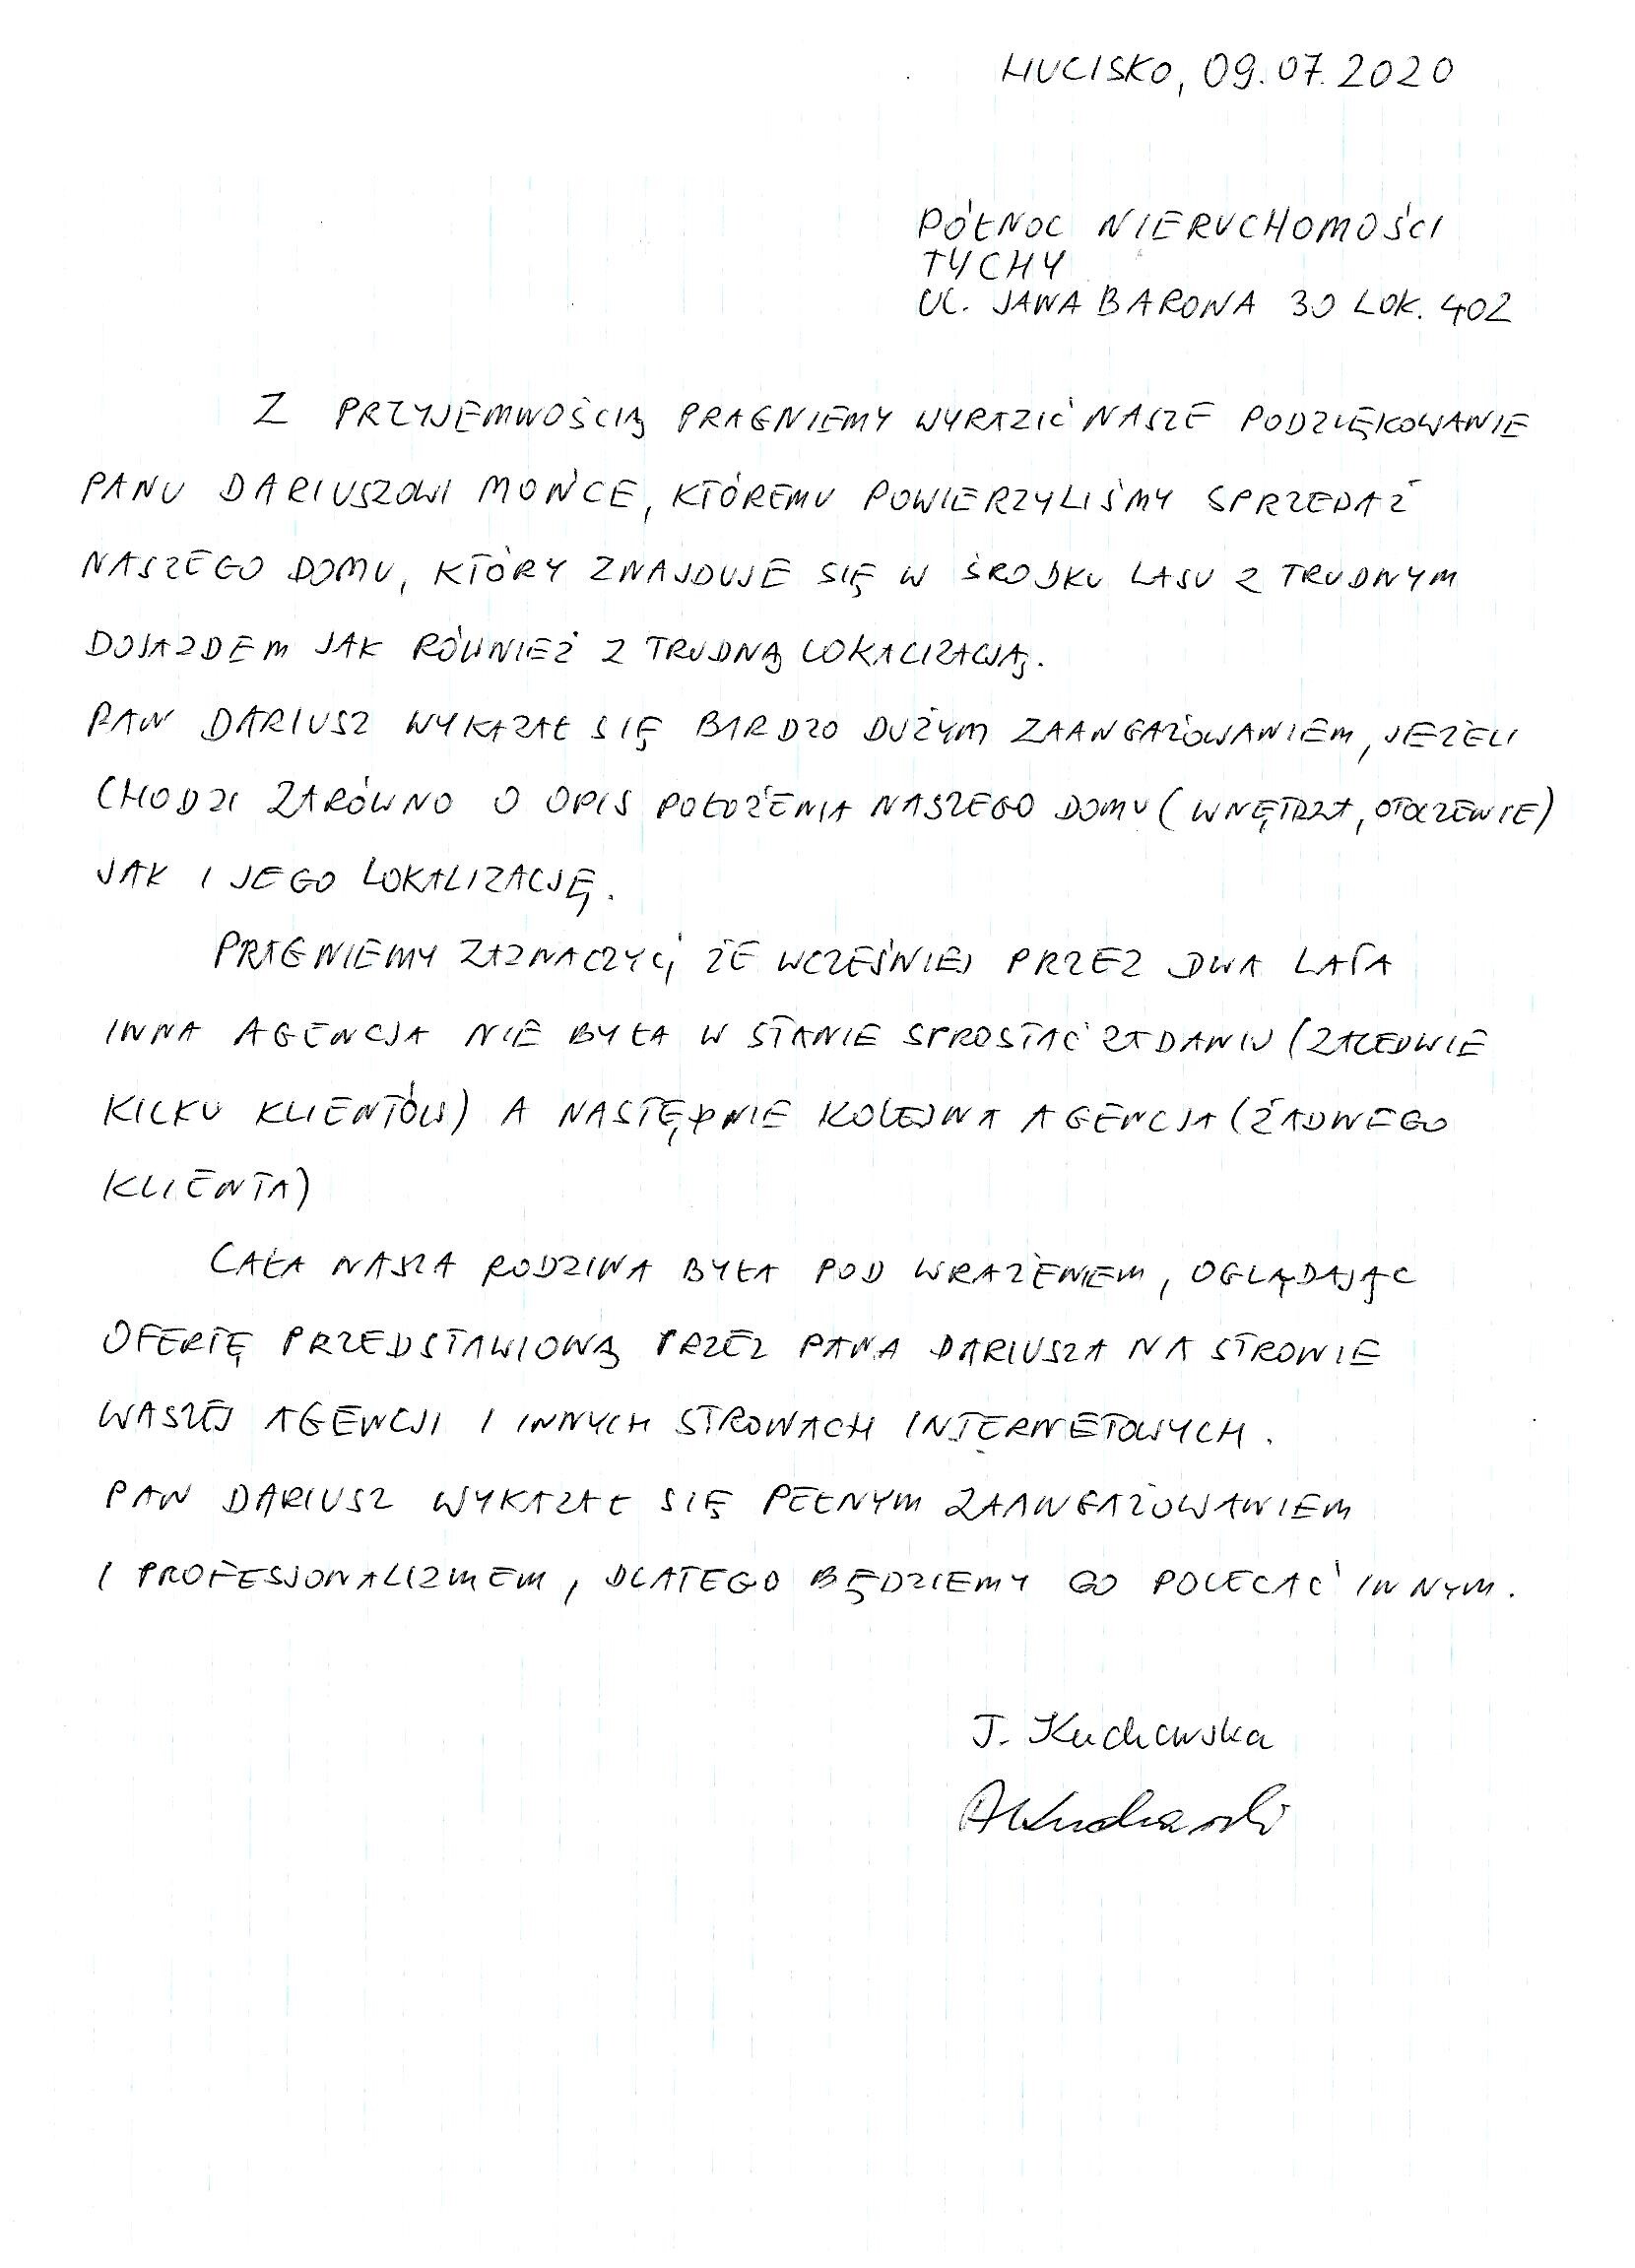 HUCISKO, 09.07.2020
PÓŁNOC NIERUCHOMOŚCI
TYCHY
UL. JANA BARONA 30 LOK. 402
Z PRZYJEMNOŚCIĄ PRAGNIEMY WYRAZIĆ NASZE PODZIĘKOWANIE
PANU DARIUSZOWI MOŃCE, KTÓREMU POWIERZYLIŚMY SPRZEDAŻ
NASZEGO DOMU, KTÓRY ZNAJDUJE SIĘ W ŚRODKU LASU Z TRUDNYM
DOJAZDEM JAK RÓWNIEŻ Z TRUDNĄ LOKALIZACJĄ.
PAN DARIUSZ WYKAZAŁ SIĘ BARDZO DUŻYM ZAANGAŻOWANIEM, JEŻELI
CHODZI ZARÓWNO O OPIS POŁOŻENIA NASZEGO DOMU (WNĘTRZA, OTOCZENIE)
JAK I JEGO LOKALIZACJĘ.
PRAGNIEMY ZAZNACZYĆ, ŻE WCZEŚNIEJ PRZEZ DWA LATA
INNA AGENCJA NIE BYŁA W STANIE SPROSTAĆ ZADANIU (ZALEDWIE
KILKU KLIENTÓW) A NASTĘPNIE KOLEJNA AGENCJA (ŻADNEGO
KLIENTA)
CAŁA NASZA RODZINA BYŁA POD WRAŻENIEM, OGLĄDAJĄC
OFERTĘ PRZEDSTAWIONĄ PRZEZ PANA DARIUSZA NA STRONIE
WASZEJ AGENCJI I INNYCH STRONACH INTERNETOWYCH.
PAN DARIUSZ WYKAZAŁ SIĘ PEŁNYM ZAANGAŻOWANIEM
I PROFESJONALIZMEM, DLATEGO BĘDZIEMY GO POLECAĆ INNYM.
J. Kucharska